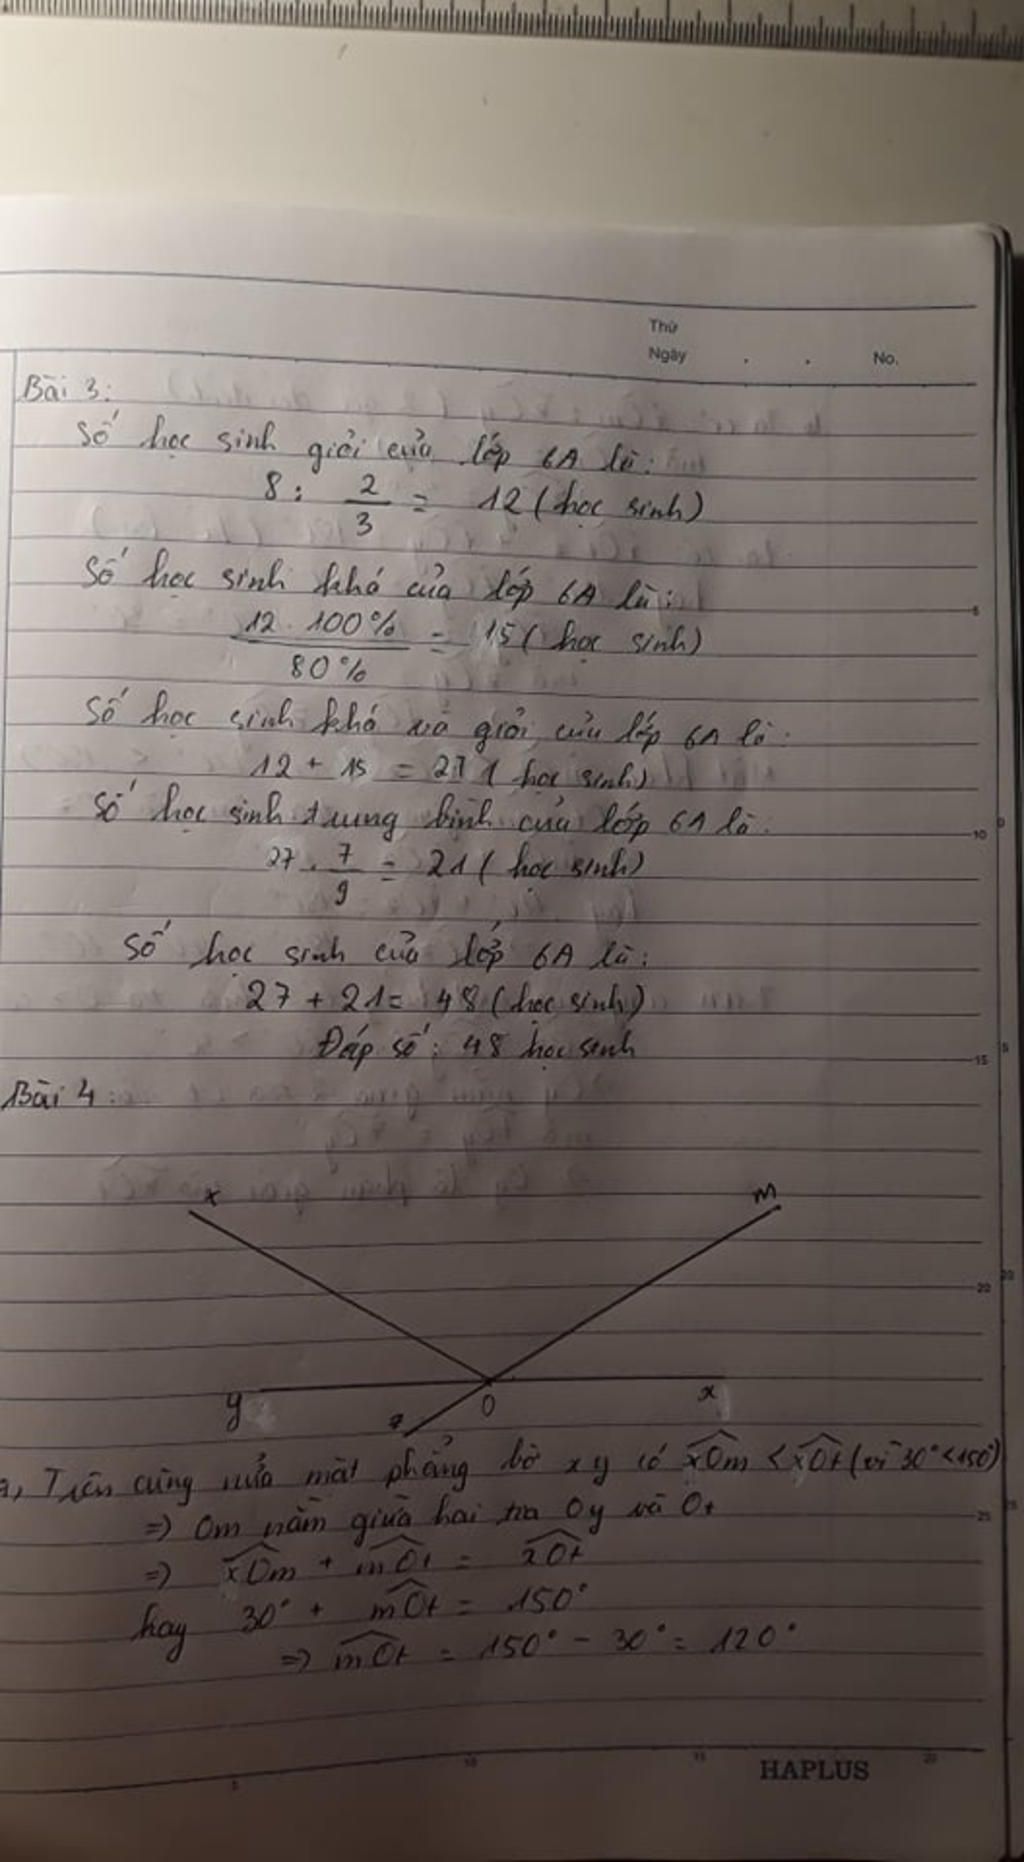 Thứ
Ngày . . No.
Bài 3:
Số học sinh giỏi của lớp 6A là:
8 : 2/3 = 12 (học sinh)
Số học sinh khá của lớp 6A là:
12 . 100% / 80% = 15 (học sinh)
Số học sinh khá và giỏi của lớp 6A là:
12 + 15 = 27 (học sinh)
Số học sinh trung bình của lớp 6A là:
27 . 7/9 = 21 (học sinh)
Số học sinh của lớp 6A là:
27 + 21 = 48 (học sinh)
Đáp số: 48 học sinh
Bài 4:
x m
y z O x
a, Trên cùng nửa mặt phẳng bờ xy có xOm < xOt (vì 30° < 150°)
=> Om nằm giữa hai tia Oy và Ot
=> xOm + mOt = xOt
hay 30° + mOt = 150°
=> mOt = 150° - 30° = 120°
5
10
15
20
25
5 10 15 20
HAPLUS